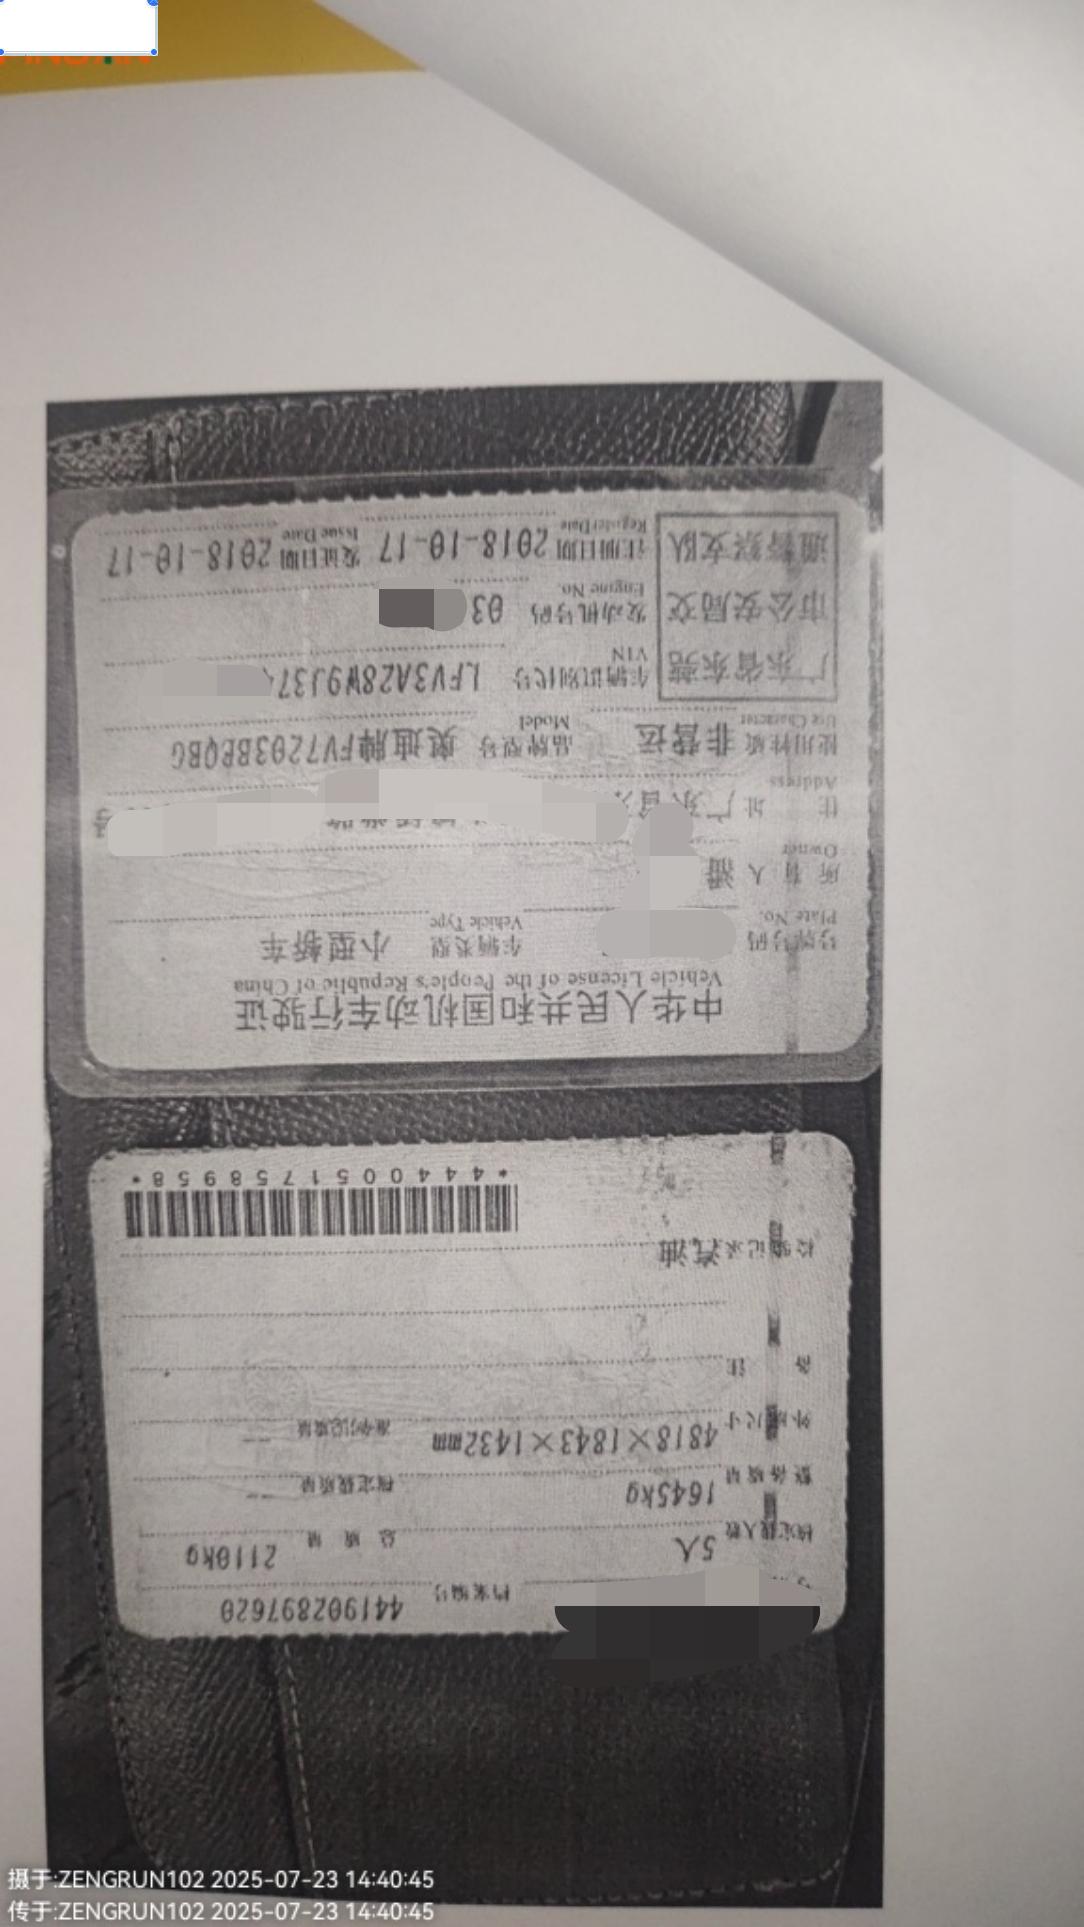 档案编号 441902897620
核定载人数 5人 总质量 2110kg
整备质量 1645kg 核定载质量 --
外廓尺寸 4818×1843×1432mm 准牵引总质量 --
备 注
检验记录 汽油
*4440051758958*
中华人民共和国机动车行驶证
Vehicle License of the People's Republic of China
号牌号码 车辆类型 小型轿车
Plate No. Vehicle Type
所有人 潘
Owner
住 址 广东省 号
Address
使用性质 非营运 品牌型号 奥迪牌FV7203BEQBG
Use Character Model
广东省东莞
市公安局交
通警察支队
车辆识别代号 LFV3A28W9J37
VIN
发动机号码 03
Engine No.
注册日期 2018-10-17 发证日期 2018-10-17
Register Date Issue Date
摄于:ZENGRUN102 2025-07-23 14:40:45
传于:ZENGRUN102 2025-07-23 14:40:45